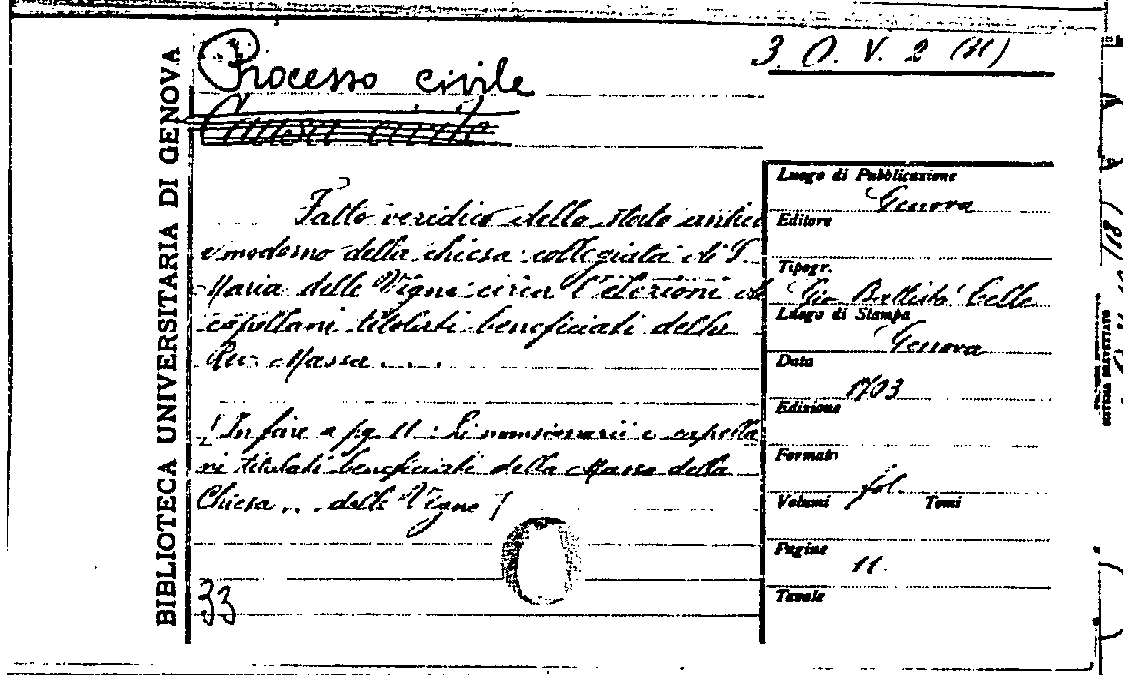 BIBLIOTECA UNIVERSITARIA DI GENOVA
3. O. V. 2 (11)
Processo civile
Causa civile
Fatto veridico dello stato antico
e moderno della chiesa collegiata di S.
Maria delle Vigne circa l'elezioni de
capellani titolati beneficiati della
Massa . . . . .
In fine a pg. 11 : Li mansionarii e capella
ni titolati beneficiati della Massa della
Chiesa . . . delle Vigne
33
Luogo di Pubblicazione
Genova
Editore
Tipogr.
Gio Battista Celle
Luogo di Stampa
Genova
Data
1703
Edizione
Formato
fol.
Volumi Tomi
Pagine
11.
Tavole